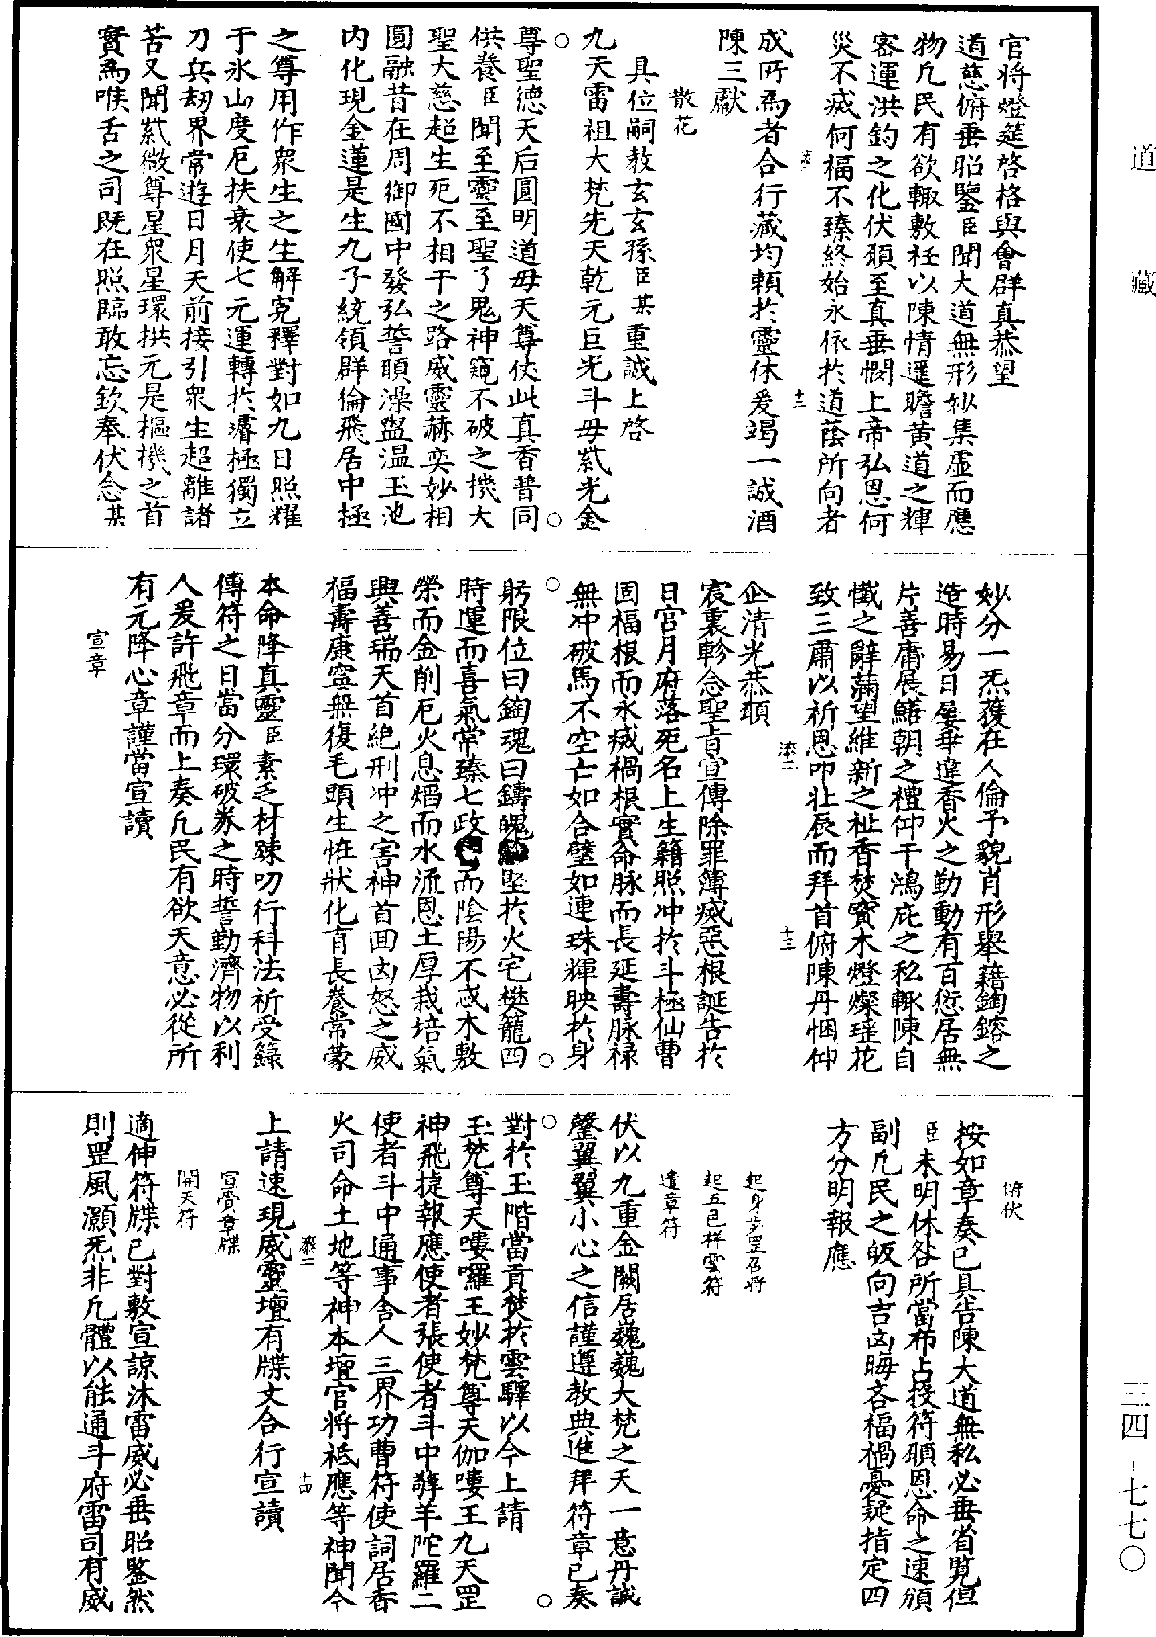 道藏
三四-七七〇
官將燈筵啓格與會群真恭望
道慈俯垂昭鑒臣聞大道無形妙集虛而應
物凡民有欲輙敷衽以陳情邇瞻黃道之輝
密運洪鈞之化伏願至真垂憫上帝弘恩何
災不威何福不臻終始永依於道蔭所向者
十二
成所為者合行藏均賴於靈休爰竭一誠酒
陳三獻
散花
具位嗣教玄玄孫臣某重誠上啓
九天雷祖大梵先天乾元巨光斗母紫光金
尊聖德天后圓明道母天尊伏此真香普同
供養臣聞至靈至聖了鬼神窺不破之機大
聖大慈超生死不相干之路威靈赫奕妙相
圓融昔在周御國中發弘誓願澡盥溫玉池
內化現金蓮是生九子統領群倫飛居中極
之尊用作衆生之生解寃釋對如九日照耀
于氷山度厄扶衰使七元運轉於璿極獨立
刀兵刼界常遊日月天前接引衆生超離諸
苦又聞紫微尊星衆星環拱元是樞機之首
實為喉舌之司既在照臨敢忘欽奉伏念某
妙分一炁獲在人倫予貌肖形舉藉鈞鎔之
造時易日屢華違香火之勤動有百愆居無
片善庸展鰭朝之禮仰干鴻庇之私輙陳自
懺之辭滿望維新之祉香焚寳木燈燦瑤花
致三肅以祈恩叩壯辰而拜首俯陳丹悃仰
十三
企清光恭願
宸裏軫念聖㫖宣傳除罪簿滅惡根誕告於
日宮月府落死名上生籍照冲於斗極仙曹
固福根而永滅禍根實命脉而長延壽脉祿
無冲破馬不空亡如合璧如連珠輝映於身
躬限位曰鈞魂曰鑄魄堅於火宅樊籠四
時運而喜氣常臻七政而陰陽不忒木敷
榮而金削厄火息熖而水流恩土厚栽培氣
興善瑞天首絕刑冲之害神首回凶怒之威
福壽康寧無復毛頭生恠狀化育長養常蒙
本命降真靈臣素乏材踈叨行科法祈受籙
傳符之日當分環破券之時誓勤濟物以利
人爰許飛章而上奏凡民有欲天意必從所
有元降心章謹當宣讀
宣章
俯伏
按如章奏已具告陳大道無私必垂省覽但
臣未明休咎所當布占投符願恩命之速頒
副凡民之皈向吉凶晦吝福禍憂疑指定四
方分明報應
起身步罡召將
起五色祥雲符
遣章符
伏以九重金闕居巍巍大梵之天一意丹誠
罄翼翼小心之信謹遵教典進拜符章已奏
對於玉階當貢焚於雲驛以今上請
玉梵尊天嘍囉王妙梵尊天伽嘍王九天罡
神飛捷報應使者張使者斗中𦍑羊陀羅二
使者斗中通事舍人三界功曹符使詞居香
火司命土地等神本壇官將祗應等神聞今
十四
上請速現威靈壇有牒文合行宣讀
宣賫章牒
開天符
適伸符牒已對敷宣諒沐雷威必垂昭鑒然
則罡風灝炁非凡體以能通斗府雷司有威